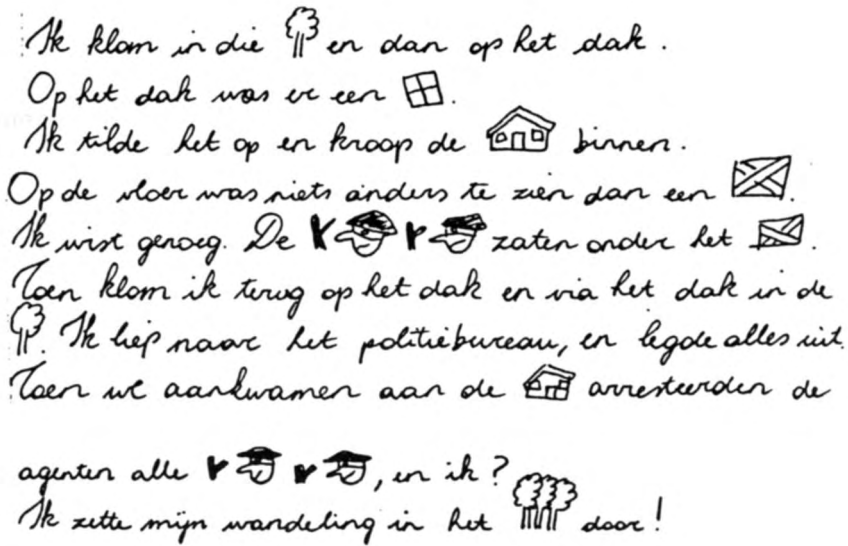 Ik klom in die en dan op het dak.
Op het dak was er een .
Ik tilde het op en kroop de binnen.
Op de vloer was niets anders te zien dan een .
Ik wist genoeg. De zaten onder het .
Toen klom ik terug op het dak en via het dak in de
. Ik liep naar het politiebureau, en legde alles uit.
Toen we aankwamen aan de arresteerden de
agenten alle , en ik?
Ik zette mijn wandeling in het door!